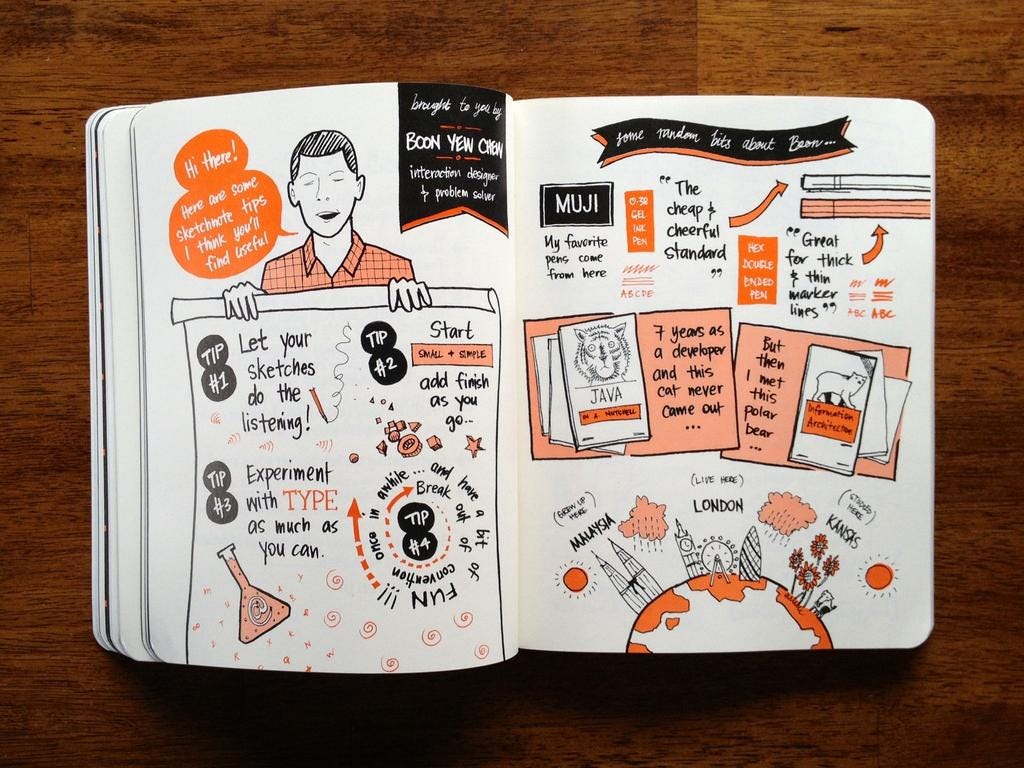 Hi there!
Here are some
sketchnote tips
I think you'll
find useful
brought to you by
BOON YEW CHEW
interaction designer
& problem solver
TIP
#1
Let your
sketches
do the
listening!
TIP
#2
Start
SMALL + SIMPLE
add finish
as you
go...
TIP
#3
Experiment
with TYPE
as much as
you can.
@
TIP
#4
Break
out of
convention
once in
awhile... and have
a bit of
FUN!!!
some random bits about Boon...
MUJI
My favorite
pens come
from here
0.38
GEL
INK
PEN
ABCDE
"The
cheap &
cheerful
standard"
HEX
DOUBLE
ENDED
PEN
"Great
for thick
& thin
marker
lines"
ABC ABC
JAVA
IN A NUTSHELL
7 years as
a developer
and this
cat never
came out
...
But
then
I met
this
polar
bear
...
Information
Architecture
(GREW UP
HERE)
MALAYSIA
(LIVE HERE)
LONDON
(STUDIED
HERE)
KANSAS